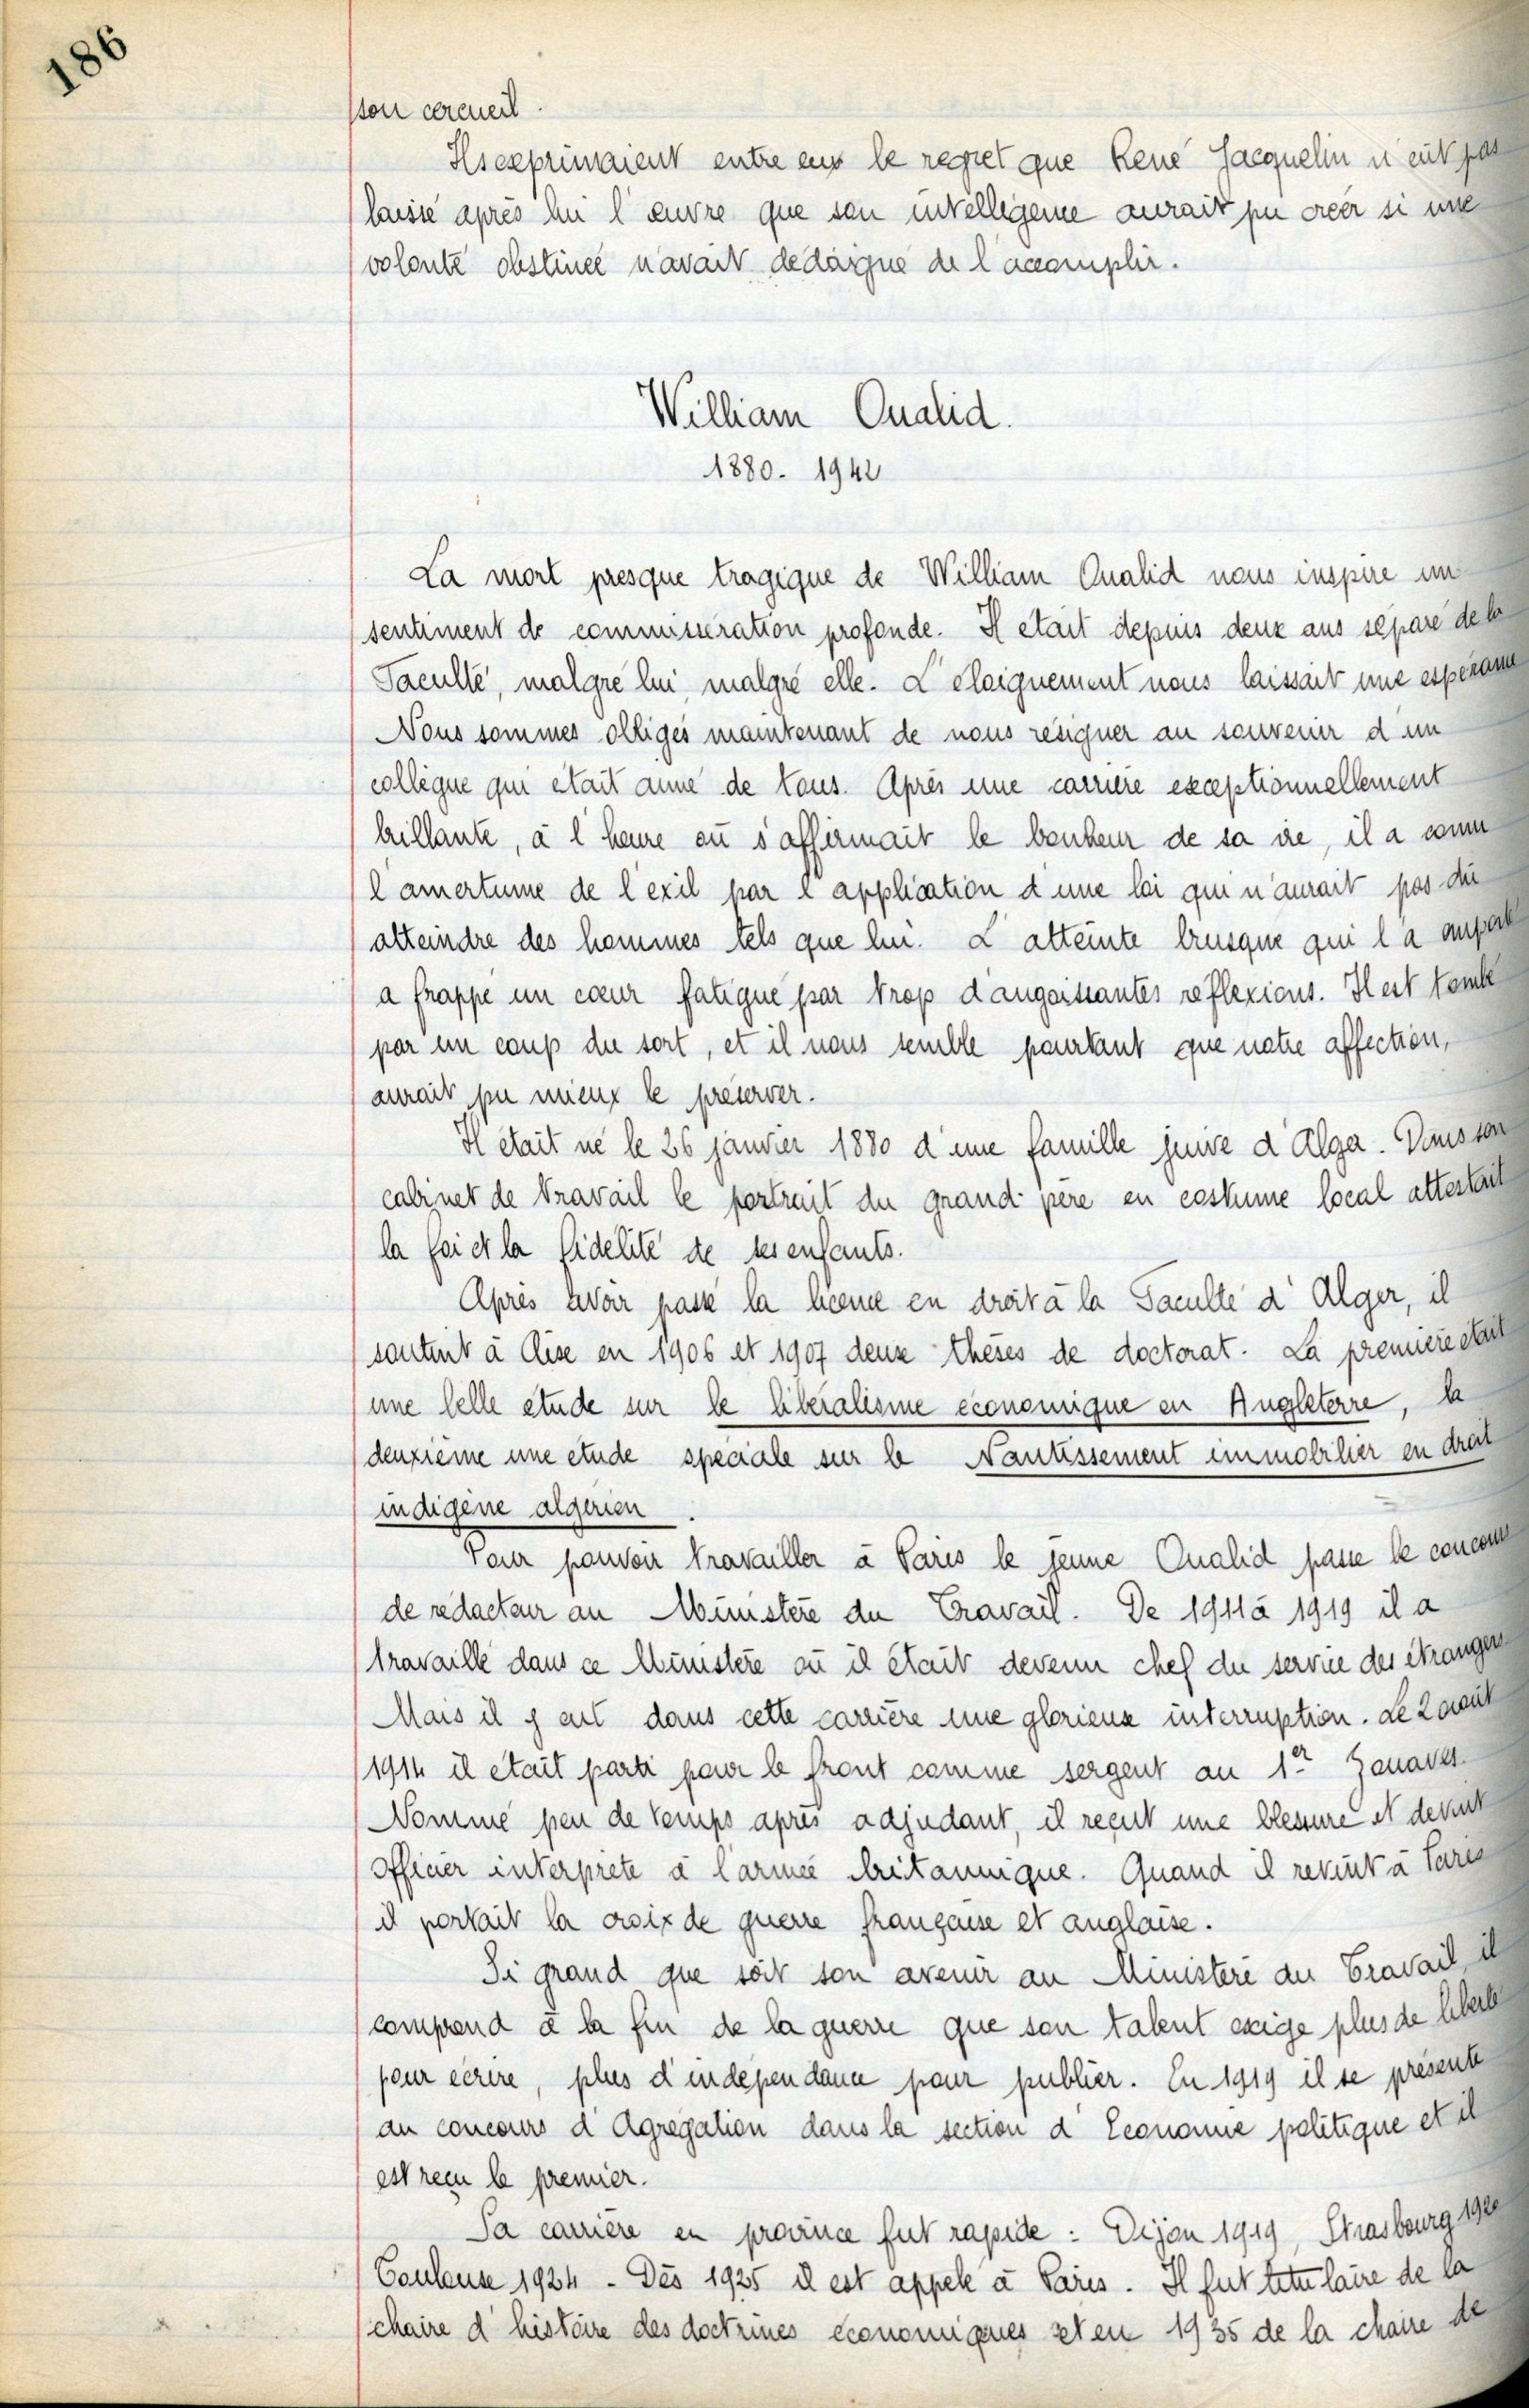 186
son cercueil.
Ils exprimaient entre eux le regret que René Jacquelin n'eût pas
laissé après lui l'œuvre que son intelligence aurait pu créer si une
volonté obstinée n'avait dédaigné de l'accomplir.
William Oualid.
1880. 1942
La mort presque tragique de William Oualid nous inspire un
sentiment de commisération profonde. Il était depuis deux ans séparé de la
Faculté, malgré lui, malgré elle. L'éloignement nous laissait une espérance
Nous sommes obligés maintenant de nous résigner au souvenir d'un
collègue qui était aimé de tous. Après une carrière exceptionnellement
brillante, à l'heure où s'affirmait le bonheur de sa vie, il a connu
l'amertume de l'exil par l'application d'une loi qui n'aurait pas dû
atteindre des hommes tels que lui. L'atteinte brusque qui l'a emporté
a frappé un cœur fatigué par trop d'angoissantes réflexions. Il est tombé
par un coup du sort, et il nous semble pourtant que notre affection,
aurait pu mieux le préserver.
Il était né le 26 janvier 1880 d'une famille juive d'Alger. Dans son
cabinet de travail le portrait du grand-père en costume local attestait
la foi et la fidélité de ses enfants.
Après avoir passé la licence en droit à la Faculté d'Alger, il
soutint à Aise en 1906 et 1907 deux thèses de doctorat. La première était
une belle étude sur le libéralisme économique en Angleterre, la
deuxième une étude spéciale sur le Nantissement immobilier en droit
indigène algérien.
Pour pouvoir travailler à Paris le jeune Oualid passe le concours
de rédacteur au Ministère du Travail. De 1911 à 1919 il a
travaillé dans ce Ministère où il était devenu chef du service des étrangers.
Mais il y eut dans cette carrière une glorieuse interruption. Le 2 août
1914 il était parti pour le front comme sergent au 1er Zouaves.
Nommé peu de temps après adjudant, il reçut une blessure et devint
officier interprète à l'armée britannique. Quand il revint à Paris
il portait la croix de guerre française et anglaise.
Si grand que soit son avenir au Ministère du Travail, il
comprend à la fin de la guerre que son talent exige plus de liberté
pour écrire, plus d'indépendance pour publier. En 1919 il se présente
au concours d'Agrégation dans la section d'Economie politique et il
est reçu le premier.
Sa carrière en province fut rapide : Dijon 1919, Strasbourg 1920
Toulouse 1924 - Dès 1925 il est appelé à Paris. Il fut titulaire de la
chaire d'histoire des doctrines économiques et en 1935 de la chaire de